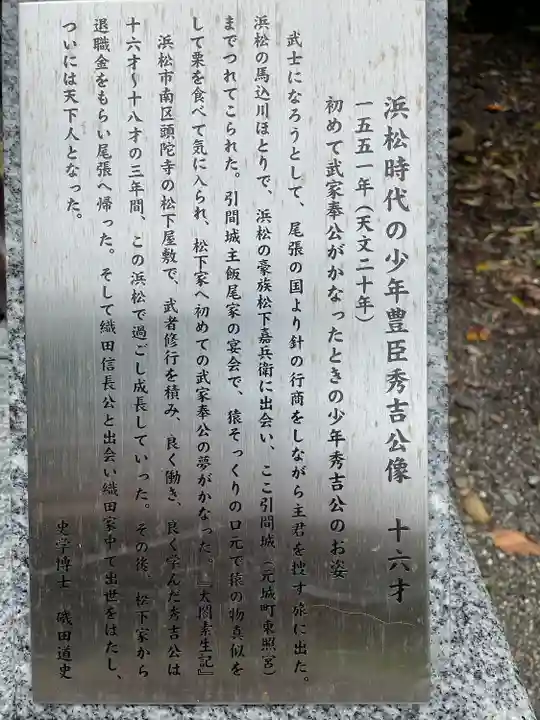 浜松時代の少年豊臣秀吉公像　十六才
一五五一年(天文二十年)
初めて武家奉公がかなったときの少年秀吉公のお姿
武士になろうとして、尾張の国より針の行商をしながら主君を捜す旅に出た。
浜松の馬込川ほとりで、浜松の豪族松下嘉兵衛に出会い、ここ引間城(元城町東照宮)
までつれてこられた。引間城主飯尾家の宴会で、猿そっくりの口元で猿の物真似を
して栗を食べて気に入られ、松下家へ初めての武家奉公の夢がかなった。『太閤素生記』
浜松市南区頭陀寺の松下屋敷で、武者修行を積み、良く働き、良く学んだ秀吉公は
十六才〜十八才の三年間、この浜松で過ごし成長していった。その後、松下家から
退職金をもらい尾張へ帰った。そして織田信長公と出会い織田家中で出世をはたし、
ついには天下人となった。
史学博士　磯田道史